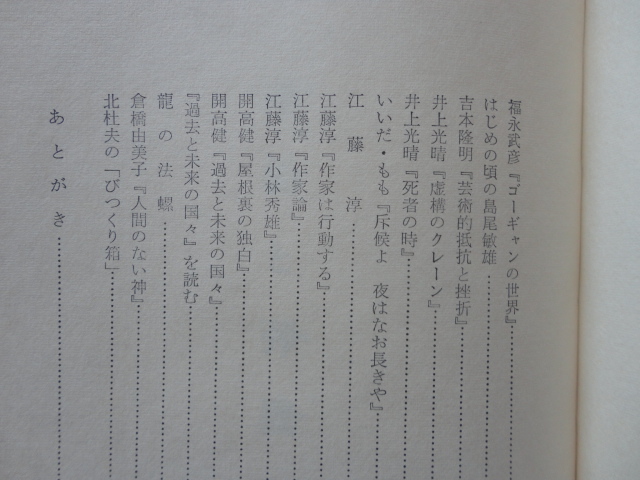 福永武彦『ゴーギャンの世界』
はじめの頃の島尾敏雄
吉本隆明『芸術的抵抗と挫折』
井上光晴『虚構のクレーン』
井上光晴『死者の時』
いいだ・もも『斥候よ 夜はなお長きや』
江藤淳
江藤淳『作家は行動する』
江藤淳『作家論』
江藤淳『小林秀雄』
開高健『屋根裏の独白』
開高健『過去と未来の国々』
『過去と未来の国々』を読む
龍の法螺
倉橋由美子『人間のない神』
北杜夫の「びつくり箱」
あとがき